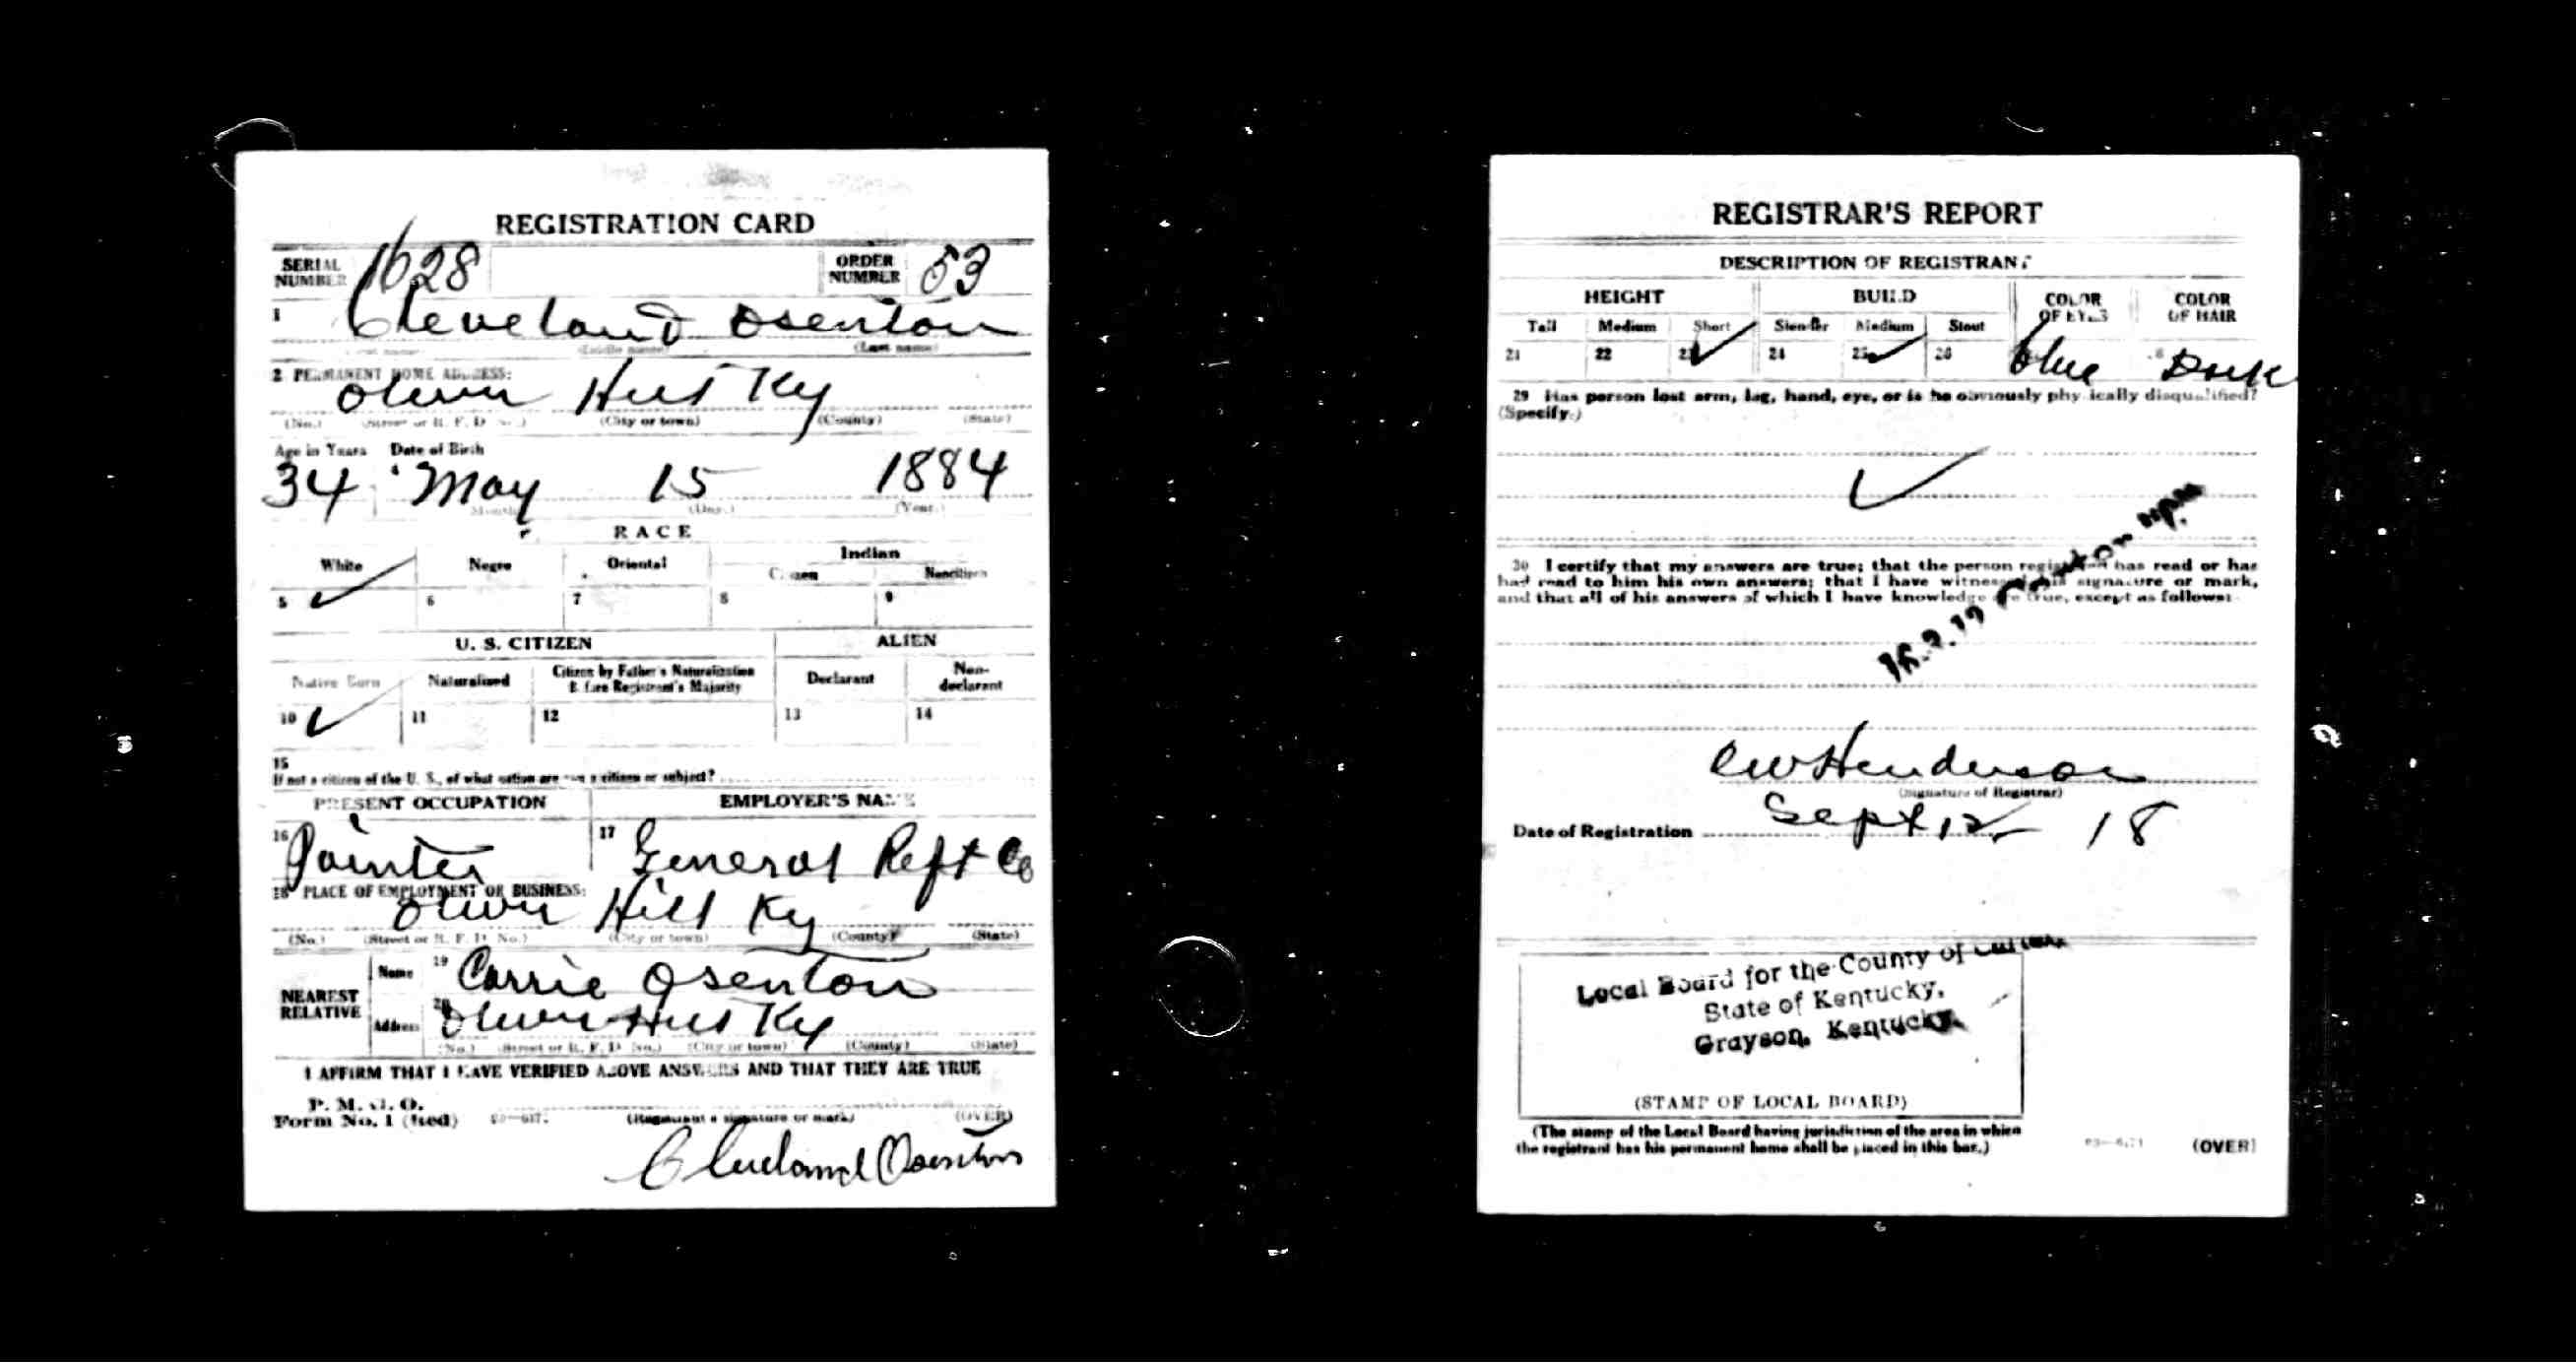 REGISTRATION CARD
SERIAL NUMBER 1628 ORDER NUMBER 53
1 Cleveland Osenton
(Middle name) (Last name)
2 PERMANENT HOME ADDRESS:
Olive Hill Ky
(No.) (Street or R. F. D. No.) (City or town) (County) (State)
Age in Years Date of Birth
34 4 May 15 1884
(Month.) (Day.) (Year.)
RACE
White Negro Oriental Indian
Citizen Noncitizen
5 ✓ 6 7 8 9
U. S. CITIZEN ALIEN
Native Born Naturalized Citizen by Father's Naturalization Before Registrant's Majority Declarant Non-declarant
10 ✓ 11 12 13 14
15
If not a citizen of the U. S., of what nation are you a citizen or subject?
PRESENT OCCUPATION EMPLOYER'S NAME
16 Painter 17 General Reft Co
18 PLACE OF EMPLOYMENT OR BUSINESS:
Olive Hill Ky
(No.) (Street or R. F. D. No.) (City or town) (County) (State)
NEAREST RELATIVE
Name 19 Carrie Osenton
Address 20 Olive Hill Ky
(No.) (Street or R. F. D. No.) (City or town) (County) (State)
I AFFIRM THAT I HAVE VERIFIED ABOVE ANSWERS AND THAT THEY ARE TRUE
P. M. G. O.
Form No. 1 (Red) (Registrant's signature or mark) (OVER)
Cleveland Osenton
REGISTRAR'S REPORT
DESCRIPTION OF REGISTRANT
HEIGHT BUILD COLOR OF EYES COLOR OF HAIR
Tall Medium Short Slender Medium Stout
21 22 23 ✓ 24 25 ✓ 26 blue Dark
29 Has person lost arm, leg, hand, eye, or is he obviously physically disqualified?
(Specify.)
✓
30 I certify that my answers are true; that the person registered has read or has
had read to him his own answers; that I have witnessed his signature or mark,
and that all of his answers of which I have knowledge are true, except as follows:
Henderson
(Signature of Registrar)
Date of Registration Sept 12 18
Local Board for the County of Carter,
State of Kentucky,
Grayson, Kentucky.
(STAMP OF LOCAL BOARD)
(The stamp of the Local Board having jurisdiction of the area in which
the registrant has his permanent home shall be placed in this box.)
(OVER)